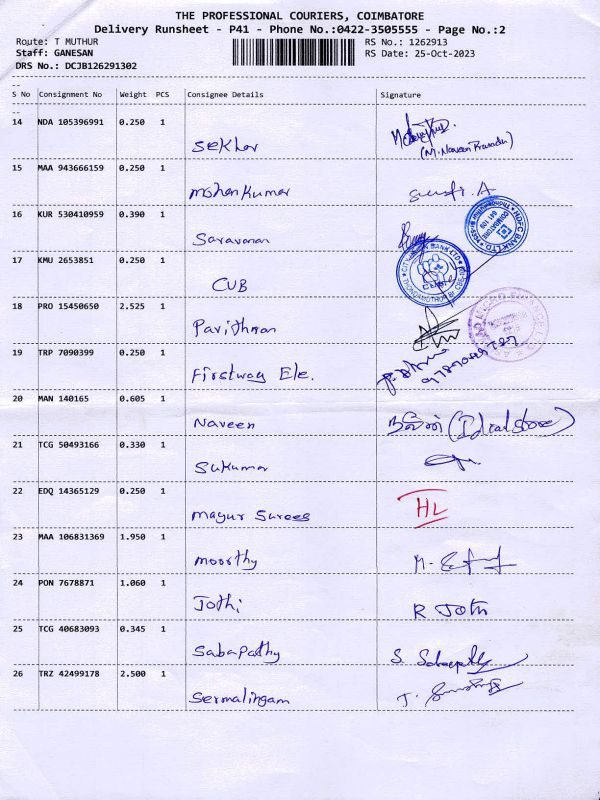 THE PROFESSIONAL COURIERS, COIMBATORE
Delivery Runsheet - P41 - Phone No.:0422-3505555 - Page No.:2
Route: T MUTHUR RS No.: 1262913
Staff: GANESAN RS Date: 25-Oct-2023
DRS No.: DCJB126291302
S No Consignment No Weight PCS Consignee Details Signature
14 NDA 105396991 0.250 1
Sekhar
(M. Naveen Prasadh)
15 MAA 943666159 0.250 1
Mohankumar
16 KUR 530410959 0.390 1
Saravanan
HDFC BANK LTD
COIMBATORE
641 109
17 KMU 2653851 0.250 1
CUB
18 PRO 15450650 2.525 1
Pavithran
19 TRP 7090399 0.250 1
Firstway Ele.
20 MAN 140165 0.605 1
Naveen
நவீன் (Ideal store)
21 TCG 50493166 0.330 1
Sukumar
22 EDQ 14365129 0.250 1
Mayur Surees
HL
23 MAA 106831369 1.950 1
Moorthy
24 PON 7678871 1.060 1
Jothi
R Joth
25 TCG 40683093 0.345 1
Sabapathy
26 TRZ 42499178 2.500 1
Sermalingam